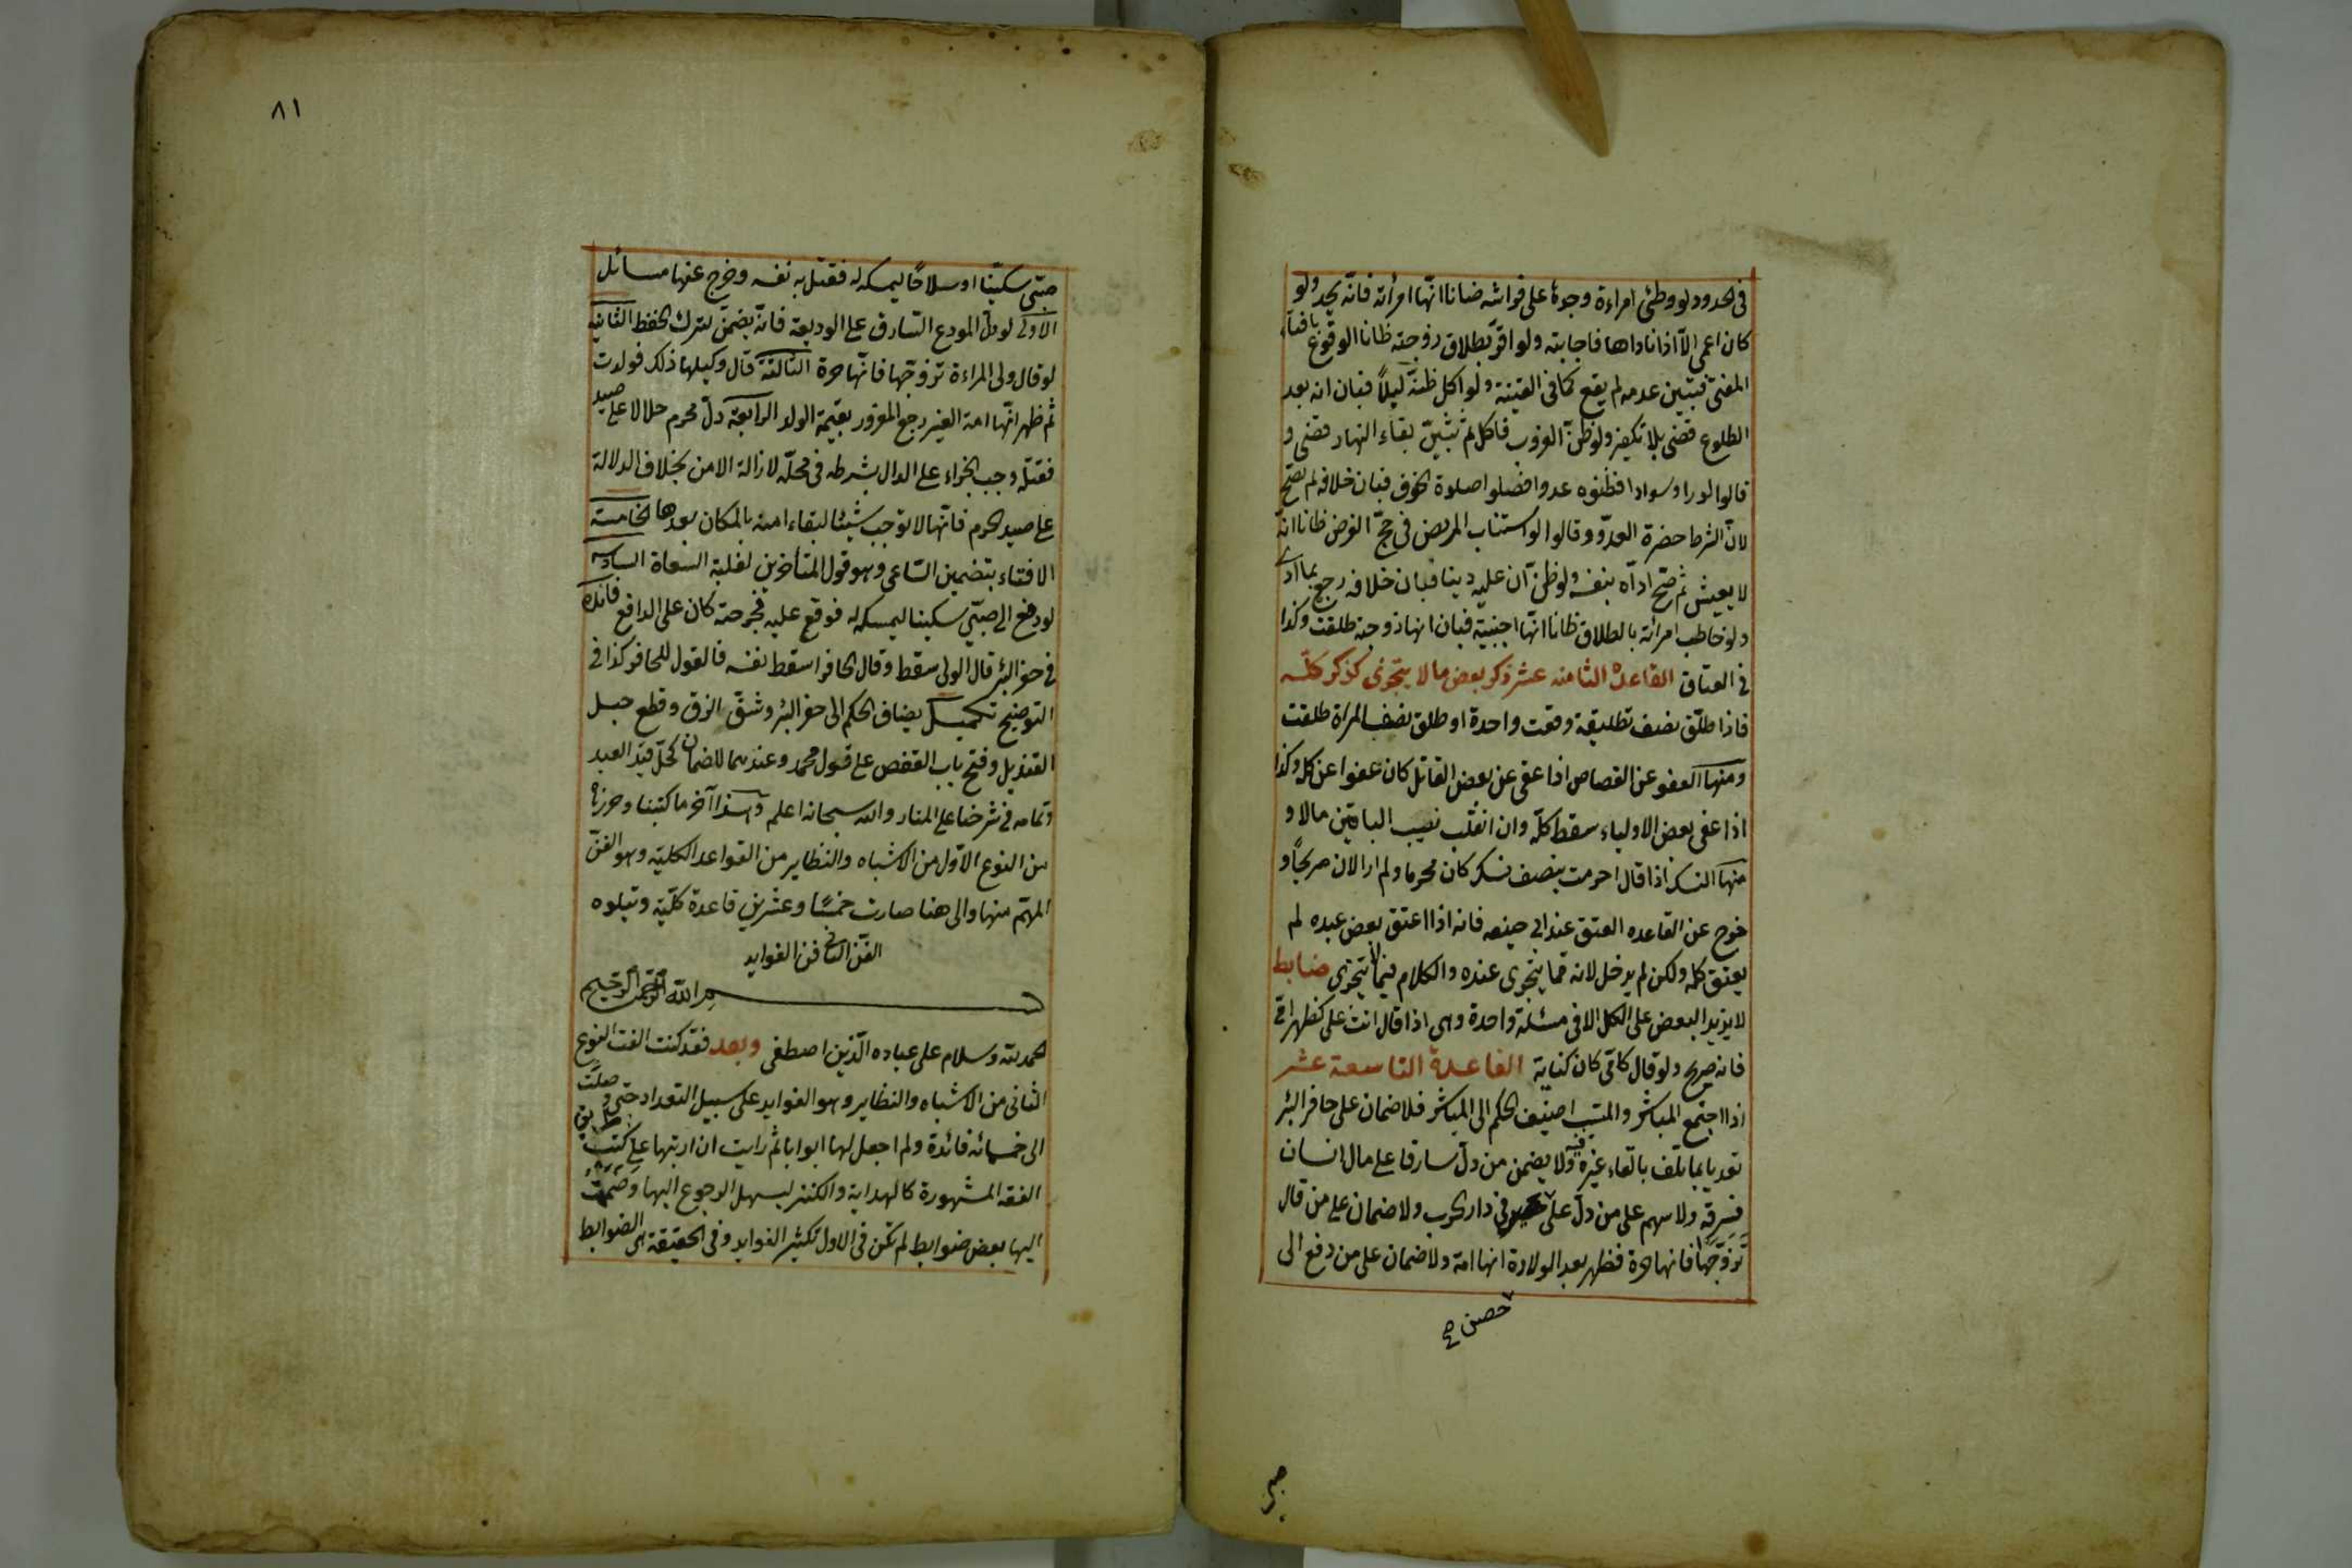 فى الحدود لو وطئ امراءة وجدها على فراشه ضانا انها امرأته فانه يحد ولو
كان اعمى الا اذا ناداها فاجابته ولو اقرّ بطلاق زوجته ظانا الوقوع بافتاء
المفتى فتبيّن عدمه لم يقع كما فى القنية ولو اكل ظنّه ليلاً فبان انه بعد
الطلوع قضى بلا تكفير ولو ظنّ الغروب فاكل ثم تبيّن بقاء النهار قضى و
قالوا لو راوا سوادا فظنوه عدوا فصلوا صلوة الخوف فبان خلافه لم تصح
لانّ الشرط حضرة العدوّ وقالوا لو استناب المريض فى حجّ الفرض ظانا انّه
لا يعيش ثم صحّ ادّاه بنفسه ولو ظنّ انّ عليه دينا فبان خلافه رجع بما ادى
ولو خاطب امرأته بالطلاق ظانا انّها اجنبيّة فبان انها زوجته طلقت وكذا
فى العتاق القاعدة الثامنه عشر ذكر بعض ما لا يتجزى كذكر كلّه
فاذا طلّق نصف تطليقة وقعت واحدة او طلق نصف المرأة طلقت
ومنها العفو عن القصاص اذا عفى عن بعض القاتل كان عفوا عن كله وكذا
اذا عفى بعض الاولياء سقط كلّه وان انقلب نصيب الباقين مالا و
منها النسك اذا قال احرمت بنصف نسك كان محرما ولم ار الان صريحًا و
خرج عن القاعده العتق عند ابى حنيفه فانه اذا اعتق بعض عبده لم
يعتق كله ولكن لم يدخل لانه مما يتجزى عنده والكلام فيما لا يتجزى ضابط
لا يزيد البعض على الكل الا فى مسئلة واحدة وهى اذا قال انت على كظهر امّى
فانه صريح ولو قال كامّى كان كناية القاعدة التاسعة عشر
اذا اجتمع المباشر والمتسبب اضيف الحكم الى المباشر فلا ضمان على حافر البئر
تعديا بما تلف بالقاء غيره فيه ولا يضمن من دلّ سارقا على مال انسان
فسرقه ولا سهم على من دلّ على فى دار الحرب ولا ضمان على من قال
تزوّجها فانها حرة فظهر بعد الولادة انها امة ولا ضمان على من دفع الى
حصن صح
صبى
٨١
صبّى سكّينا او سلاحًا ليمسكه له فقتل به نفسه وخرج عنها مسائل
الاولى لو دلّ المودع السّارق على الوديعة فانه يضمن لترك الحفظ الثانية
لو قال ولى المراءة تزوّجها فانّها حرة الثالثة قال وكيلها ذلك فولدت
ثم ظهر انّها امة الغير رجع المغرور بقيمة الولد الرابعة دلّ محرم حلالا على صيد
فقتله وجب الجزاء على الدال بشرطه فى محلّه لازالة الامن بخلاف الدلالة
على صيد الحرم فانّها لا توجب شيئا لبقاء امنه بالمكان بعدها الخامسة
الافتاء بتضمين السّاعى وهو قول المتأخرين لغلبة السعاة السادسة
لو دفع الى صبّى سكينا ليمسكه له فوقع عليه فجرحته كان على الدافع فائدة
فى حفر البئر قال الولى سقط وقال الحافر اسقط نفسه فالقول للحافر كذا فى
التوضيح تكميل يضاف الحكم الى حفر البئر وشقّ الزق وقطع حبل
القنديل وفتح باب القفص على قول محمد وعندهما لا ضمان كحلّ قيد العبد
وتمامه فى شرحنا على المنار والله سبحانه اعلم وهذا آخر ما كتبنا وحررناه
من النوع الاوّل من الاشباه والنظاير من القواعد الكلية وهو الفنّ
المهمّ منها والى هنا صارت خمسًا وعشرين قاعدة كلّية ويتلوه
الفن الثانى فن الفوايد
بسم الله الرحمن الرحيم
الحمد لله وسلام على عباده الّذين اصطفى وبعد فقد كنت الفت النوع
الثانى من الاشباه والنظاير وهو الفوايد على سبيل التعداد حتى وصلت
الى خمسمائه فائدة ولم اجعل لها ابوابا ثم رايت ان ارتبها على كتب
الفقه المشهورة كالهداية والكنز ليسهل الرجوع اليها وضممت
اليها بعض ضوابط لم تكن فى الاول تكثير الفوايد وفى الحقيقة هى الضوابط